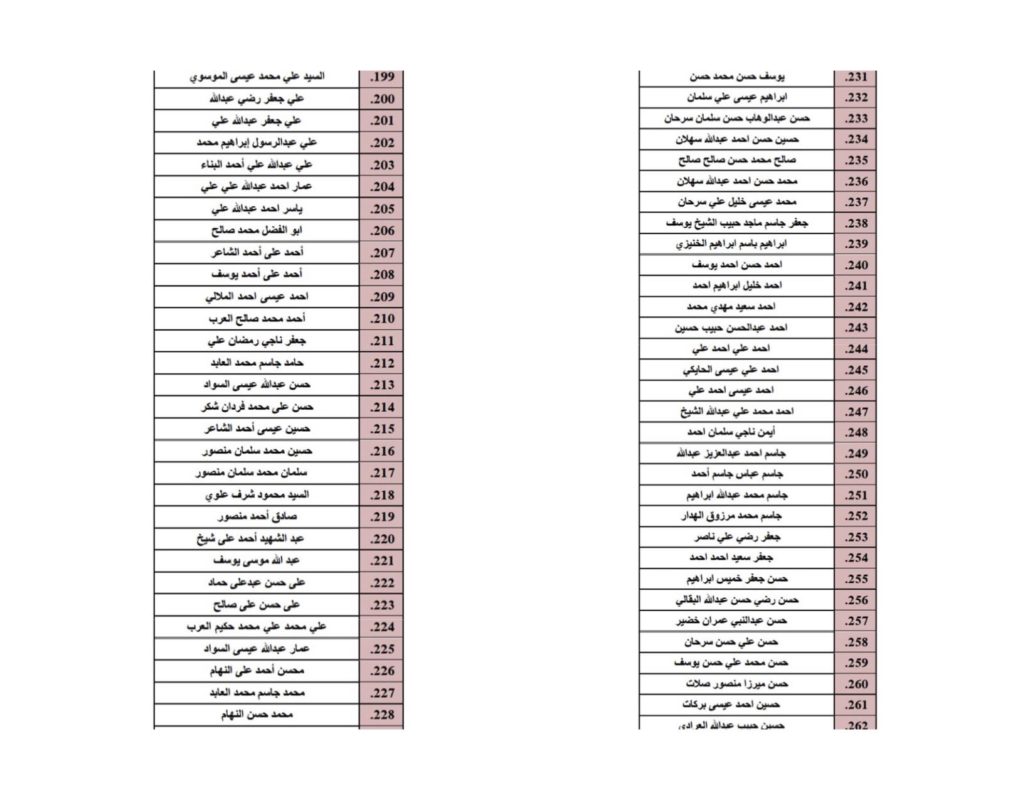 199. السيد علي محمد عيسى الموسوي
200. علي جعفر رضي عبدالله
201. علي جعفر عبدالله علي
202. علي عبدالرسول إبراهيم محمد
203. علي عبدالله علي أحمد البناء
204. عمار احمد عبدالله علي علي
205. ياسر احمد عبدالله علي
206. ابو الفضل محمد صالح
207. أحمد على أحمد الشاعر
208. أحمد على أحمد يوسف
209. احمد عيسى احمد الملالي
210. أحمد محمد صالح العرب
211. جعفر ناجي رمضان علي
212. حامد جاسم محمد العابد
213. حسن عبدالله عيسى السواد
214. حسن على محمد فردان شكر
215. حسين عيسى أحمد الشاعر
216. حسين محمد سلمان منصور
217. سلمان محمد سلمان منصور
218. السيد محمود شرف علوي
219. صادق أحمد منصور
220. عبد الشهيد أحمد على شيخ
221. عبد الله موسى يوسف
222. على حسن عبدعلى حماد
223. على حسن على صالح
224. علي محمد علي محمد حكيم العرب
225. عمار عبدالله عيسى السواد
226. محسن أحمد على النهام
227. محمد جاسم محمد العابد
228. محمد حسن النهام
231. يوسف حسن محمد حسن
232. ابراهيم عيسى علي سلمان
233. حسن عبدالوهاب حسن سلمان سرحان
234. حسين حسن احمد عبدالله سهلان
235. صالح محمد حسن صالح صالح
236. محمد حسن احمد عبدالله سهلان
237. محمد عيسى خليل علي سرحان
238. جعفر جاسم ماجد حبيب الشيخ يوسف
239. ابراهيم باسم ابراهيم الخنيزي
240. احمد حسن احمد يوسف
241. احمد خليل ابراهيم احمد
242. احمد سعيد مهدي محمد
243. احمد عبدالحسن حبيب حسين
244. احمد علي احمد علي
245. احمد علي عيسى الحايكي
246. احمد عيسى احمد علي
247. احمد محمد علي عبدالله الشيخ
248. أيمن ناجي سلمان احمد
249. جاسم احمد عبدالعزيز عبدالله
250. جاسم عباس جاسم أحمد
251. جاسم محمد عبدالله ابراهيم
252. جاسم محمد مرزوق الهدار
253. جعفر رضي علي ناصر
254. جعفر سعيد احمد احمد
255. حسن جعفر خميس ابراهيم
256. حسن رضي حسن عبدالله البقالي
257. حسن عبدالنبي عمران خضير
258. حسن علي حسن سرحان
259. حسن محمد علي حسن يوسف
260. حسن ميرزا منصور صلات
261. حسين احمد عيسى بركات
262. حسين حبيب عبدالله العرادي